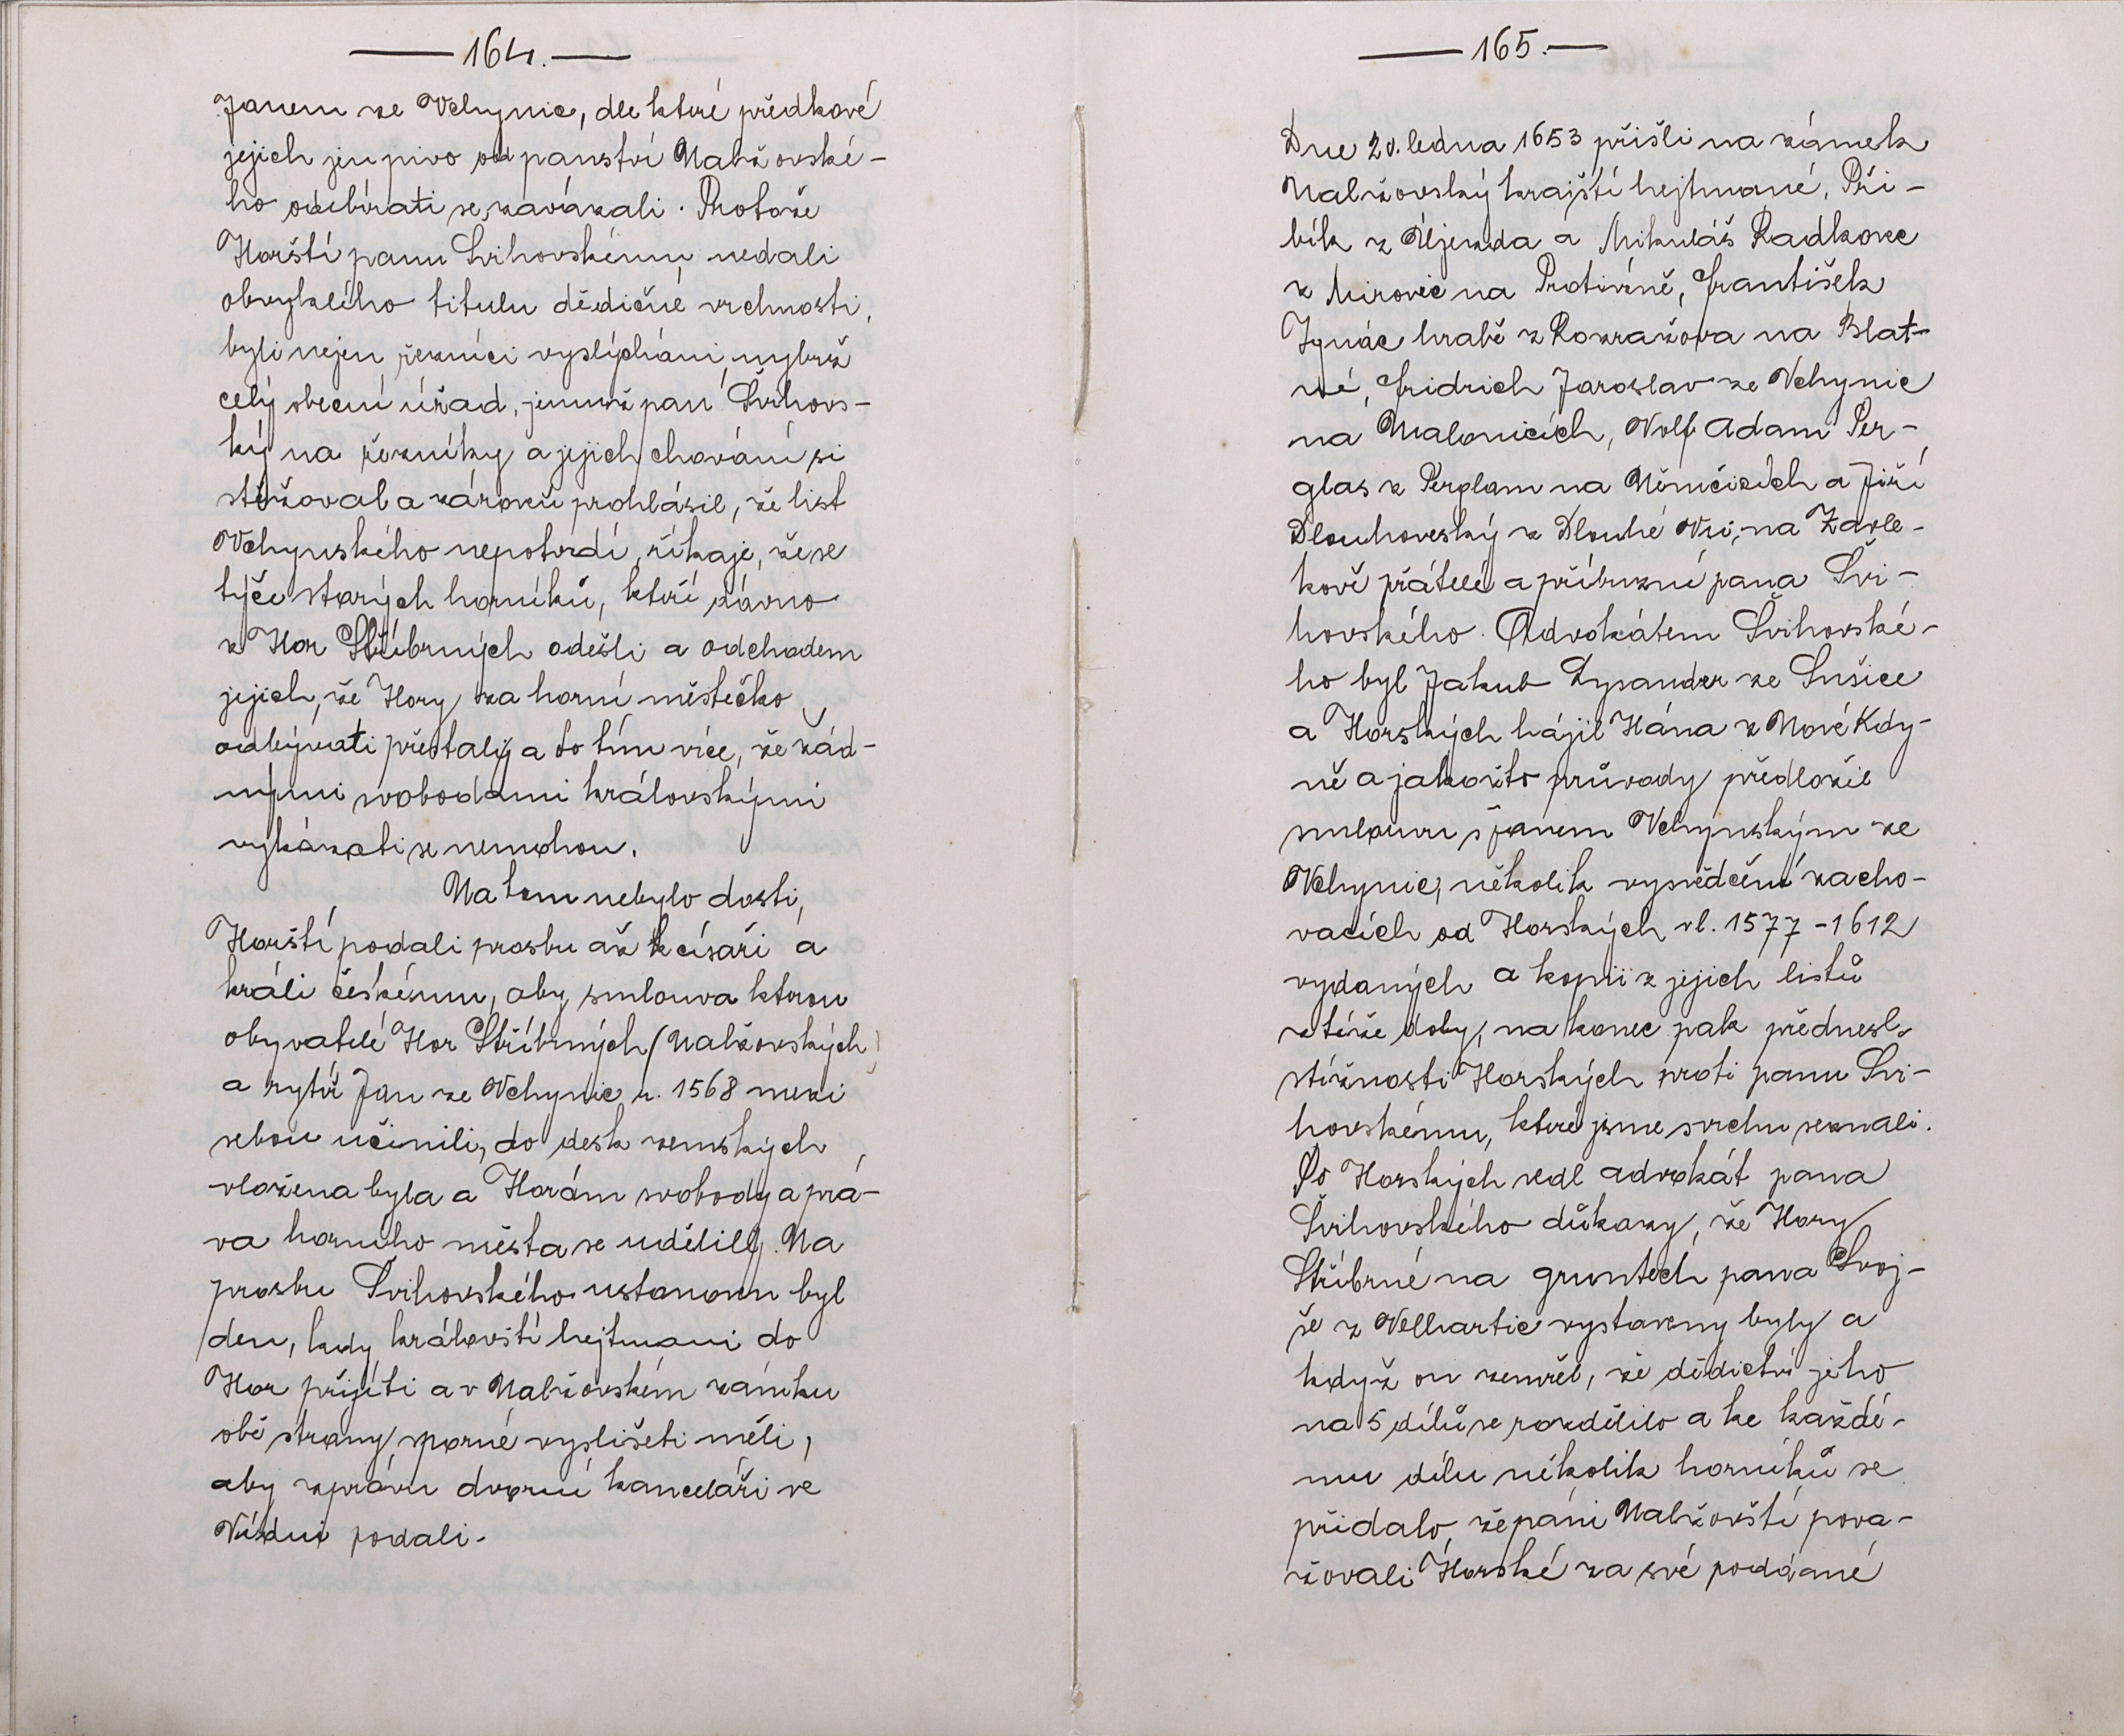 — 164. —
Janem ze Vchynic, dle které předkové
jejich jen pivo od panství Nalžovské-
ho odebírati se zavázali. Protože
Horští panu Švihovskému nedali
obvyklého titulu dědičné vrchnosti,
byli nejen řezníci vyslýcháni, nybrž
celý obecní úřad, jemuž pan Švihovs-
ký na řezníky a jejich chování si
stěžoval a zároveň prohlásil, že list
Vchynského nepotvrdí, říkaje, že se
týče starých horníků, kteří dávno
z Hor Stříbrných odešli a odchodem
jejich, že Hory za horní městečko
odbývati přestaly a to tím více, že žád-
nými svobodami královskými
vykázati se nemohou.
Na tom nebylo dosti,
Horští podali prosbu až k císaři a
králi českému, aby smlouva kterou
obyvatelé Hor Stříbrných (Nalžovských)
a rytíř Jan ze Vchynic r. 1568 mezi
sebou učinili, do desk zemských
vložena byla a Horám svobody a prá-
va horního města se udělily. Na
prosbu Švihovského ustanoven byl
den, kdy královští hejtmani do
Hor přijíti a v Nalžovském zámku
obě strany sporné vyslišeti měli,
aby zprávu dvorní kanceláři ve
Vídni podali.
— 165. —
Dne 20. ledna 1653 přišli na zámek
Nalžovský krajští hejtmané, Při-
bík z Újezda a Mikuláš Radkovec
z Mirovic na Protivíně, František
Ignác hrabě z Rozražova na Blat-
né, Fridrich Jaroslav ze Vchynic
na Malonicích, Volf Adam Per-
glas z Perglam na Němčicích a Jiří
Dlouhoveský z Dlouhé Vsi, na Zavle-
kově přátelé a příbuzní pana Švi-
hovského. Advokátem Švihovské-
ho byl Jakub Lysander ze Sušice
a Horských hájil Hána z Nové Kdy-
ně a jakožto průvody předložil
smlouvu s Janem Vchynským ze
Vchynic, několik vysvědčení zacho-
vacích od Horských vl. 1577 - 1612
vydaných a kopii z jejich listů
z téže doby, na konec pak přednesl
stížnosti Horských proti panu Švi-
hovskému, které jsme svrchu seznali.
Po Horských vedl advokát pana
Švihovského důkazy, že Hory
Stříbrné na gruntech pana Svoj-
še z Velhartic vystaveny byly a
když on zemřel, že dědictví jeho
na 5 dílů se rozdělilo a ke každé-
mu dílu několik horníků se
přidalo, že páni Nalžovští pova-
žovali Horské za své poddané